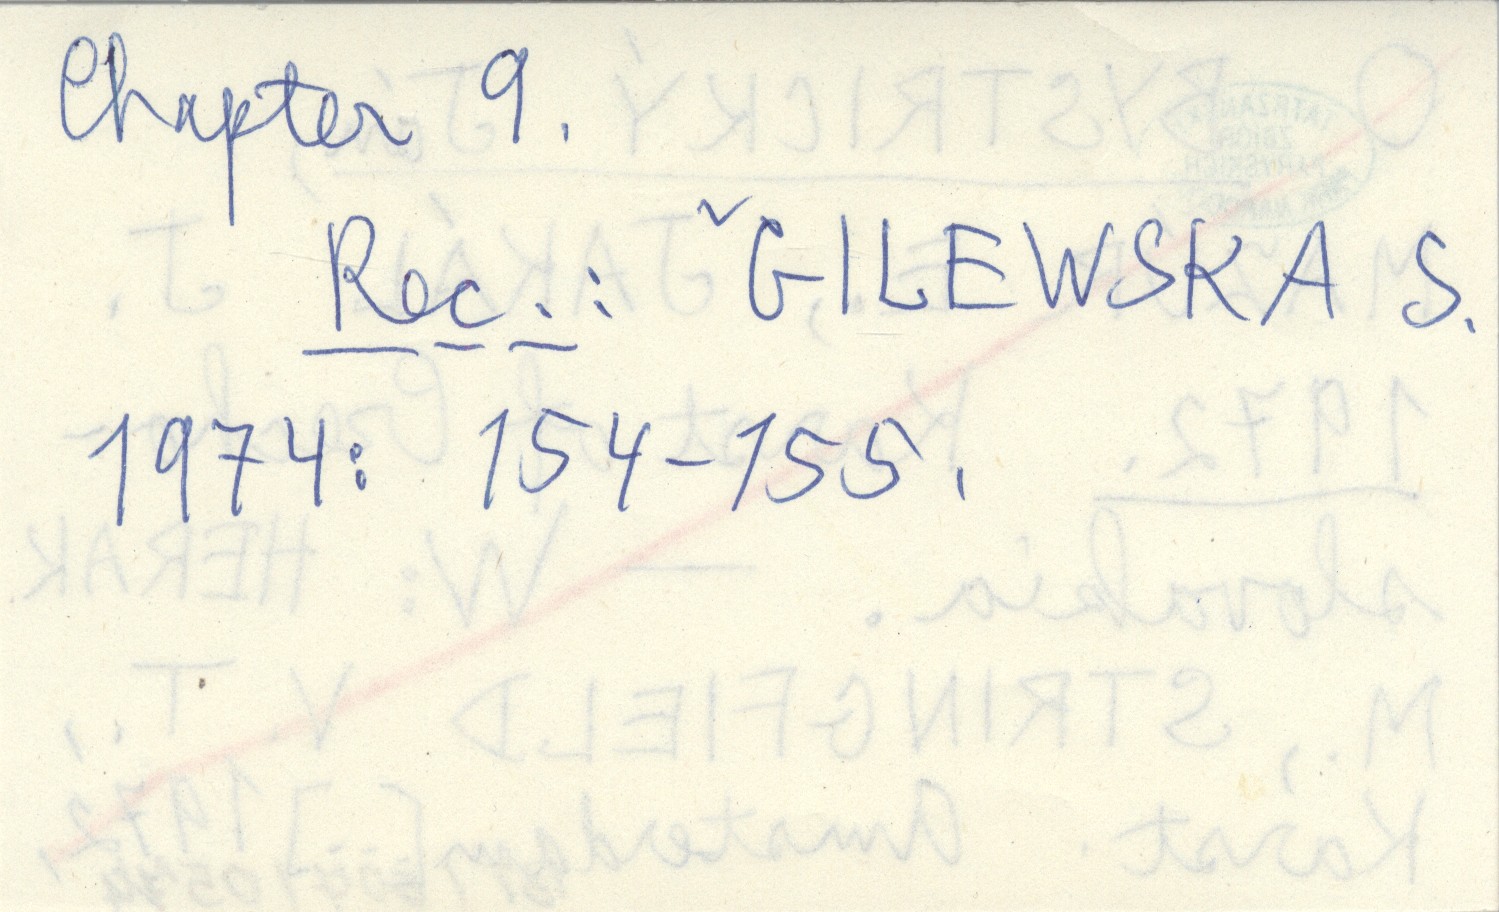 Chapter 9.
Rec.: ˇGILEWSKA S.
1974: 154-155.